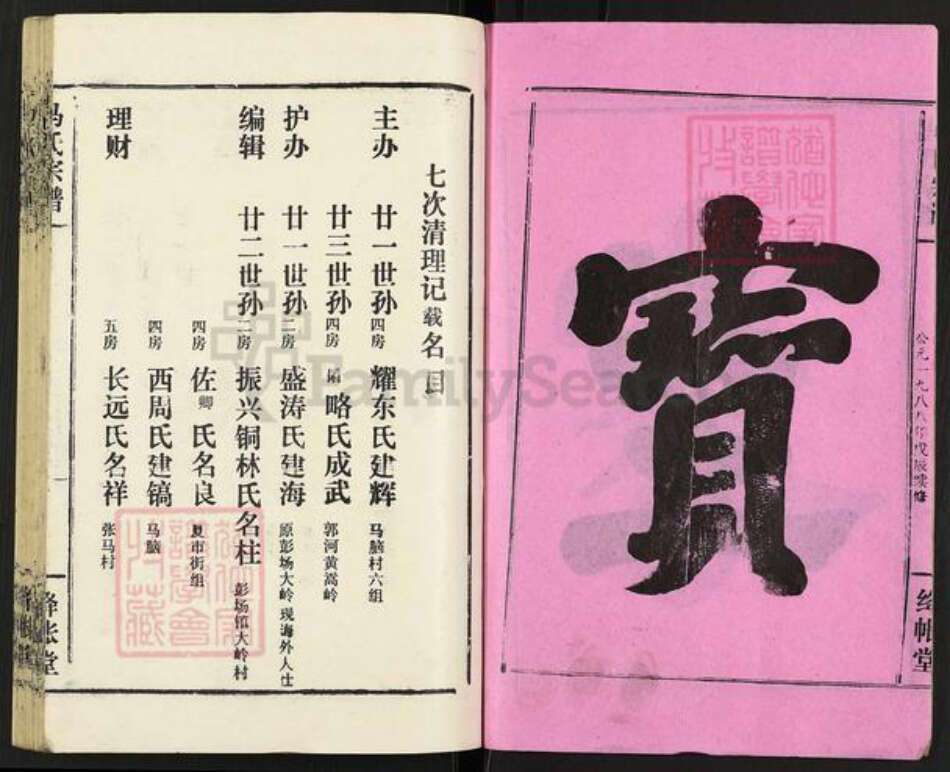 寶
公元一九八八年戊辰续修
绛帐堂
七次清理记载名目
主办 廿一世孙 四房 耀东氏建辉 马脑村六组
廿三世孙 四房 略氏成武 郭河黄嵩岭
护办 廿一世孙 二房 盛涛氏建海 原彭场大岭 现海外人士
编辑 廿二世孙 二房 振兴铜林氏名柱 彭场镇大岭村
四房 佐卿氏名良 夏市街组
四房 西周氏建镐 马脑
理财 五房 长远氏名祥 张马村
冯氏宗谱
绛帐堂
FamilySearch